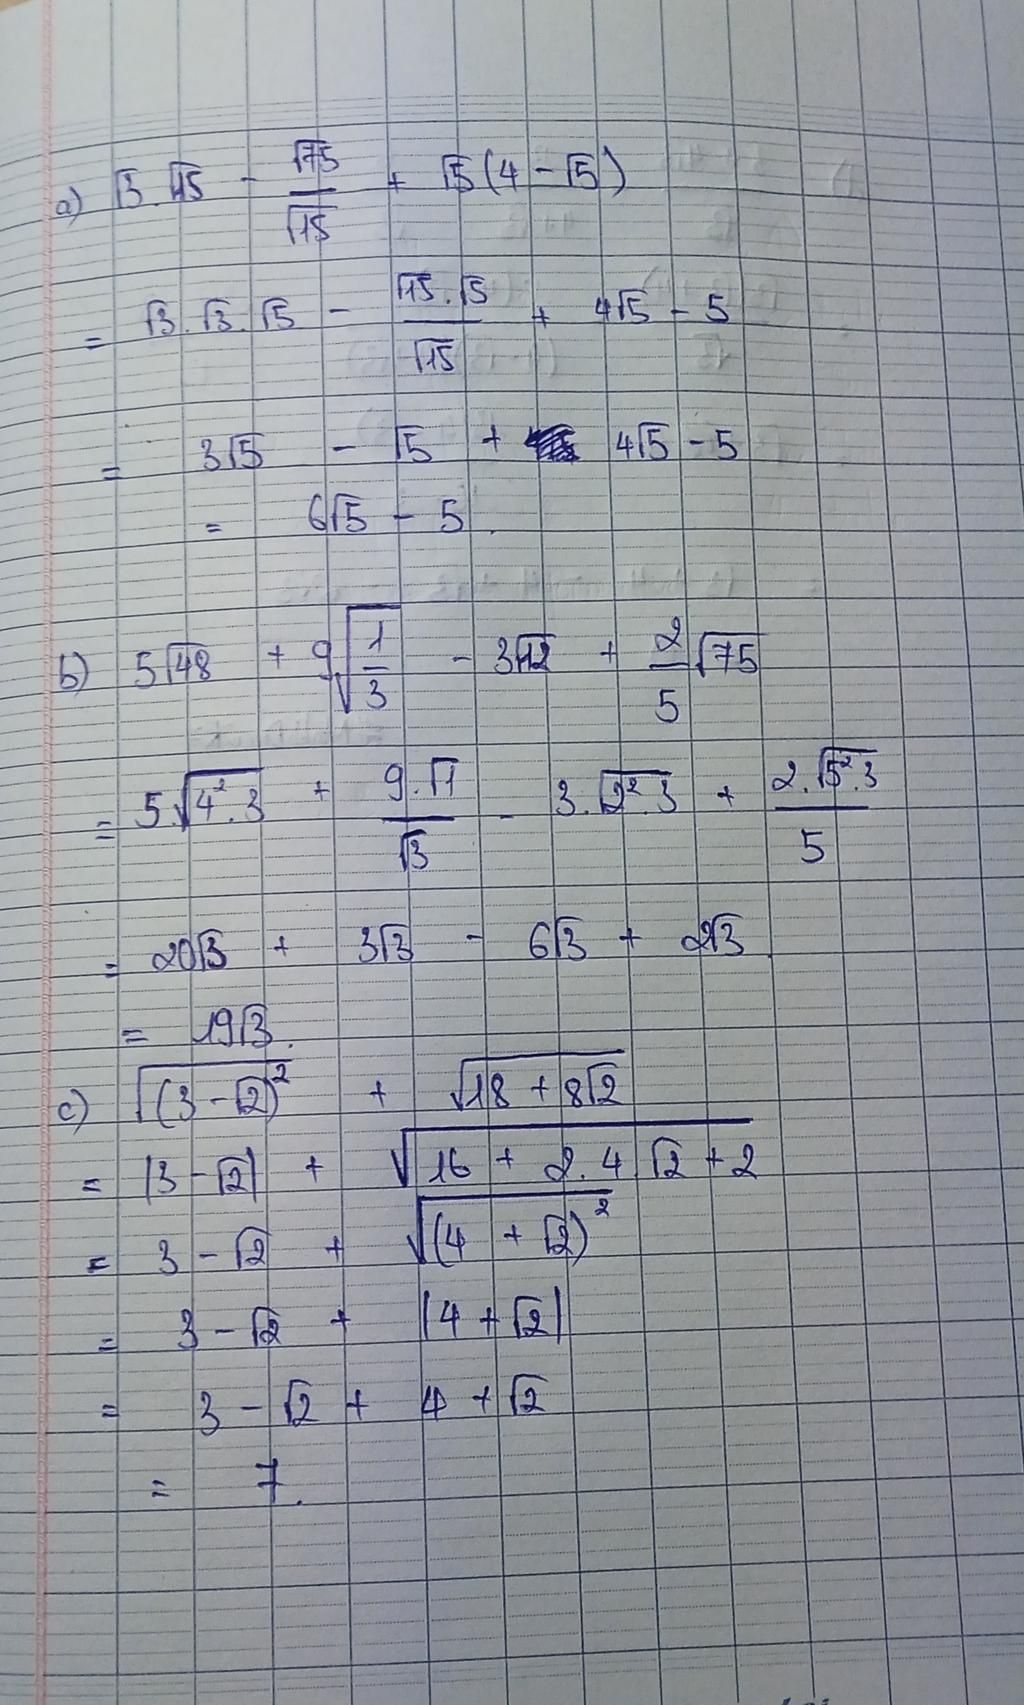 a) √3.√15 - √75/√15 + √5(4-√5)
= √3.√3.√5 - √15.√5/√15 + 4√5 - 5
= 3√5 - √5 + 4√5 - 5
= 6√5 - 5.
b) 5√48 + 9√(1/3) - 3√12 + 2/5 √75
= 5.√(4².3) + 9.√1/√3 - 3.√(2².3) + 2.√(5².3)/5
= 20√3 + 3√3 - 6√3 + 2√3.
= 19√3.
c) √((3-√2)²) + √(18+8√2)
= |3-√2| + √(16 + 2.4.√2 + 2)
= 3-√2 + √((4+√2)²)
= 3-√2 + |4+√2|
= 3-√2 + 4+√2
= 7.